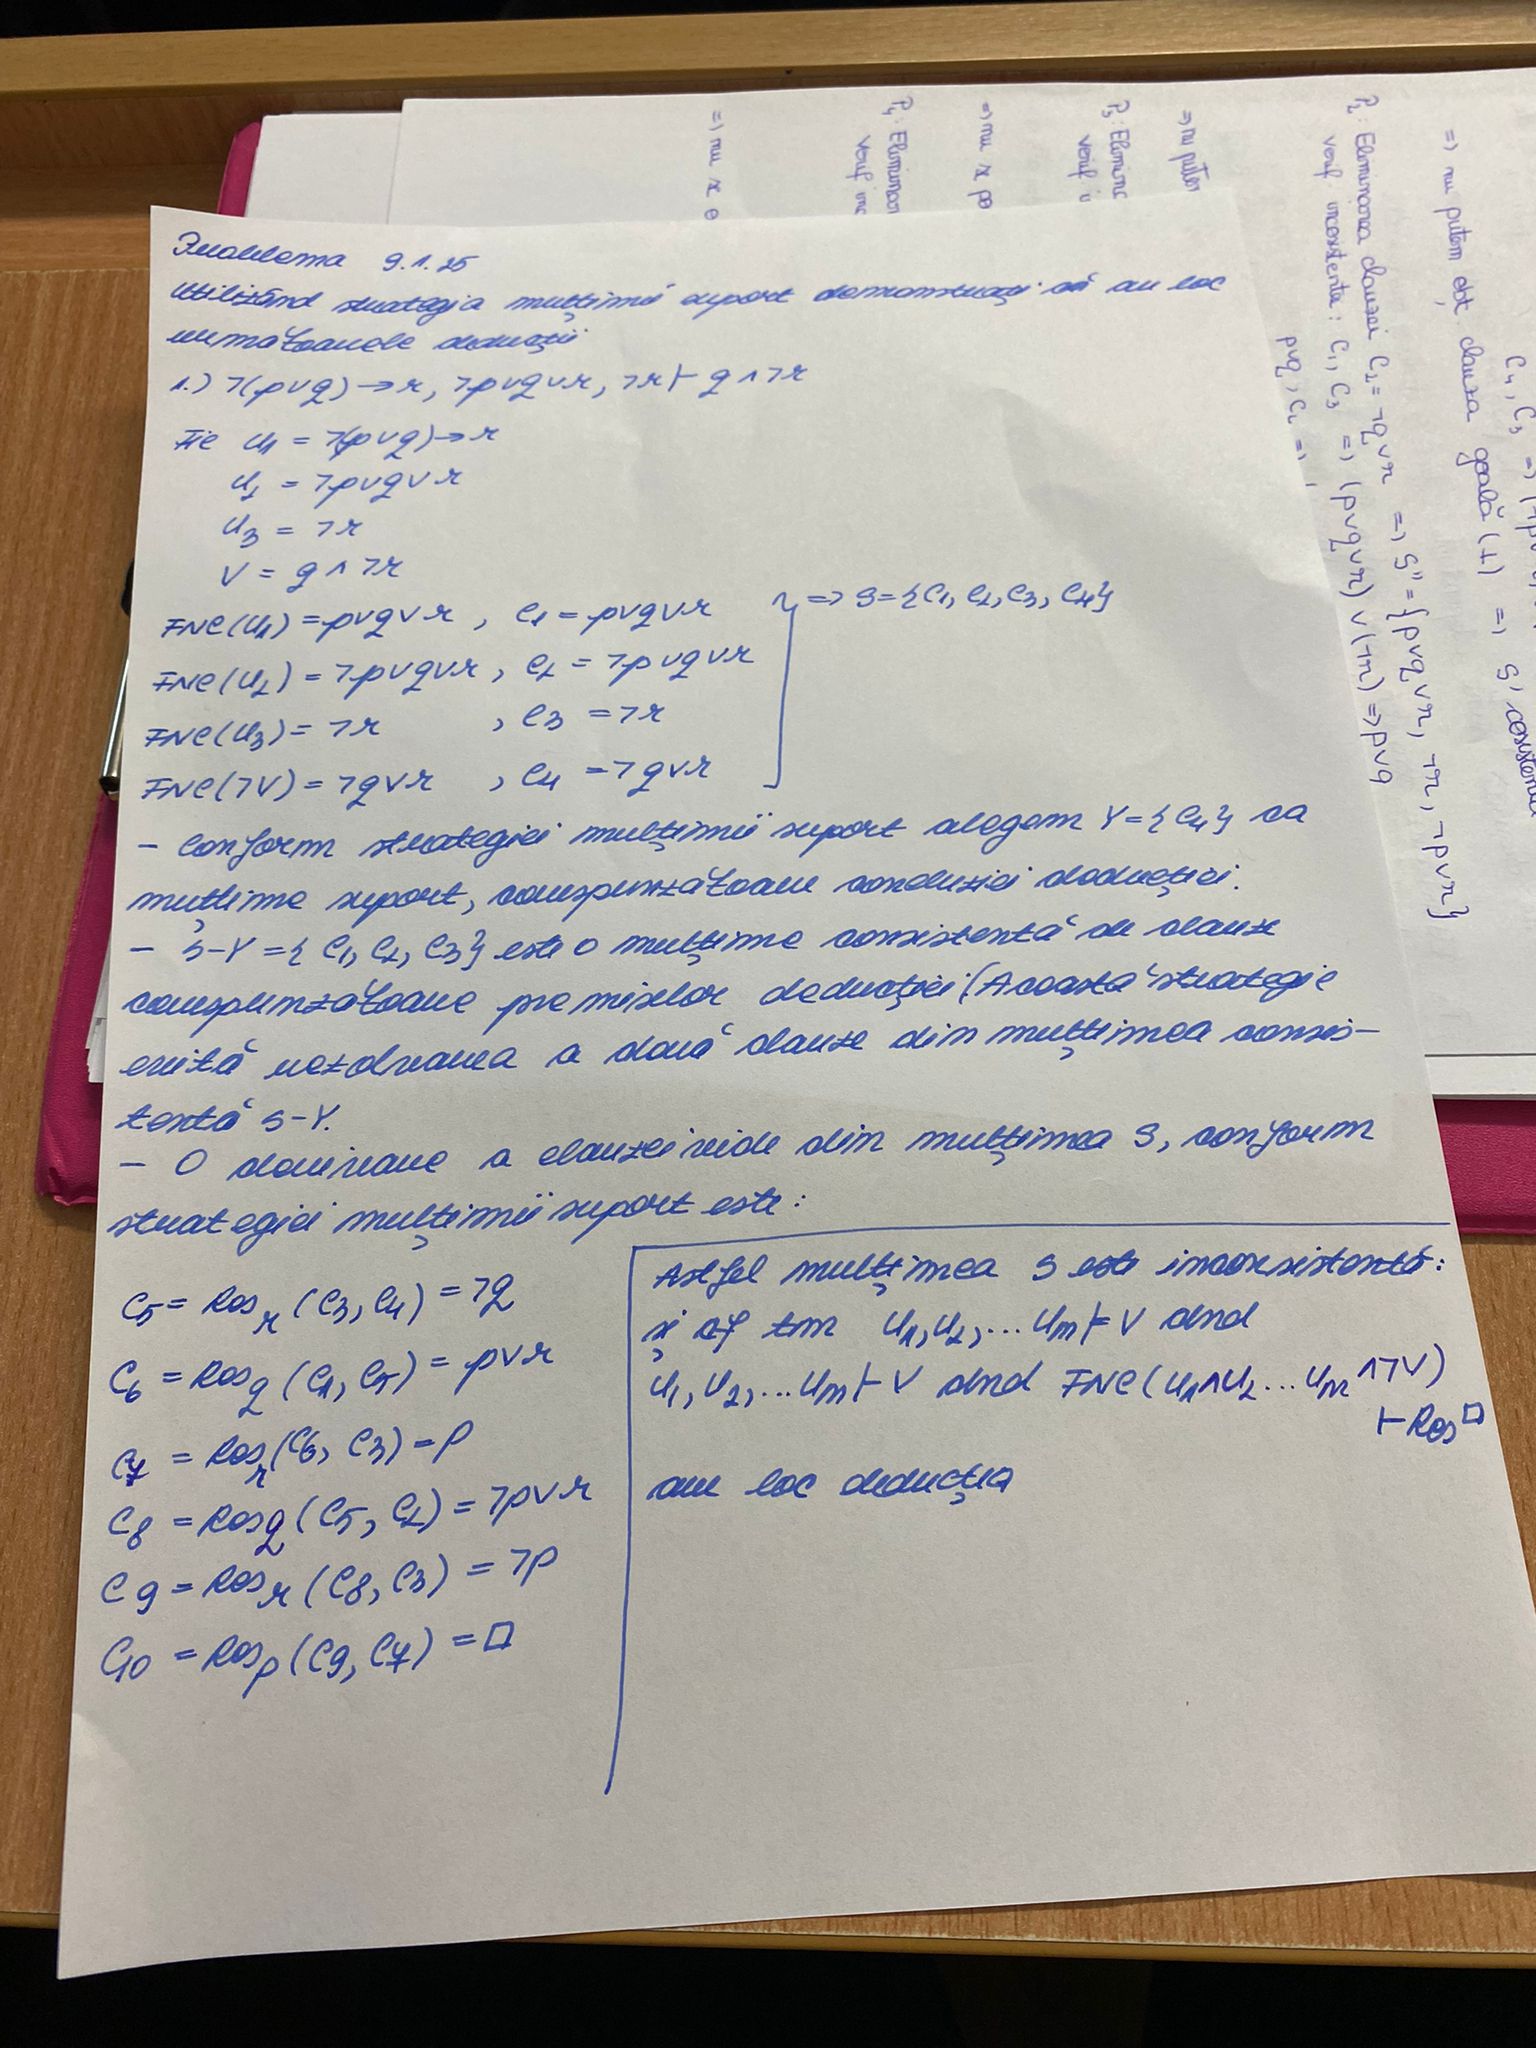 Problema 9.1.25
Utilizând strategia mulțimii suport demonstrați că au loc
următoarele deducții
1.) ¬(p∨q)→r, ¬p∨q∨r, ¬r ⊢ q∧¬r
Fie U1 = ¬(p∨q)→r
U2 = ¬p∨q∨r
U3 = ¬r
V = q∧¬r
FNC(U1) = p∨q∨r , C1 = p∨q∨r } => S={C1, C2, C3, C4}
FNC(U2) = ¬p∨q∨r , C2 = ¬p∨q∨r
FNC(U3) = ¬r , C3 = ¬r
FNC(¬V) = ¬q∨r , C4 = ¬q∨r
- Conform strategiei mulțimii suport alegem Y={C4} ca
mulțime suport, corespunzătoare concluziei deducției.
- S-Y={C1, C2, C3} este o mulțime consistentă de clauze
corespunzătoare premiselor deducției (Această strategie
evită rezolvarea a două clauze din mulțimea consis-
tentă S-Y.
- O derivare a clauzei vide din mulțimea S, conform
strategiei mulțimii suport este:
C5 = Res r (C3, C4) = ¬q
C6 = Res q (C1, C5) = p∨r
C7 = Res r (C6, C3) = p
C8 = Res q (C5, C2) = ¬p∨r
C9 = Res r (C8, C3) = ¬p
C10 = Res p (C9, C7) = □
Astfel mulțimea S este inconsistentă:
și cf tm U1, U2, ... Um ⊨ V dnd
U1, U2, ... Um ⊢ V dnd FNC(U1∧U2...Um∧¬V)
⊢Res □
are loc deducția
=) nu se
P4: Eliminar
verif inc
=) nu se po
P3: Elimina
verif i
=) nu putem
P2: Eliminarea clauzei C2 = ¬q∨r => S'' = {p∨q∨r, ¬r, ¬p∨r}
verif inconsistenta: C1, C3 => (p∨q∨r) ∨ (¬r) => p∨q
p∨q, C2 =>
=) nu putem obț. clauza goală (⊥) => S' consistentă
C4, C3 =>